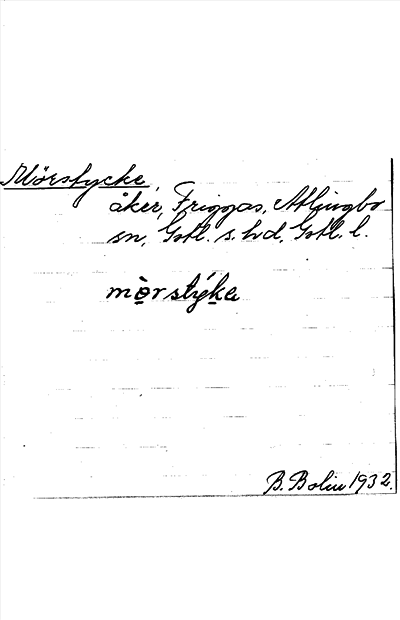 Mörstycke,
åker, Friggas, Atlingbo
sn, Gotl. s. hd, Gotl. l.
mò̱rstýḵa
B. Bolin 1932.